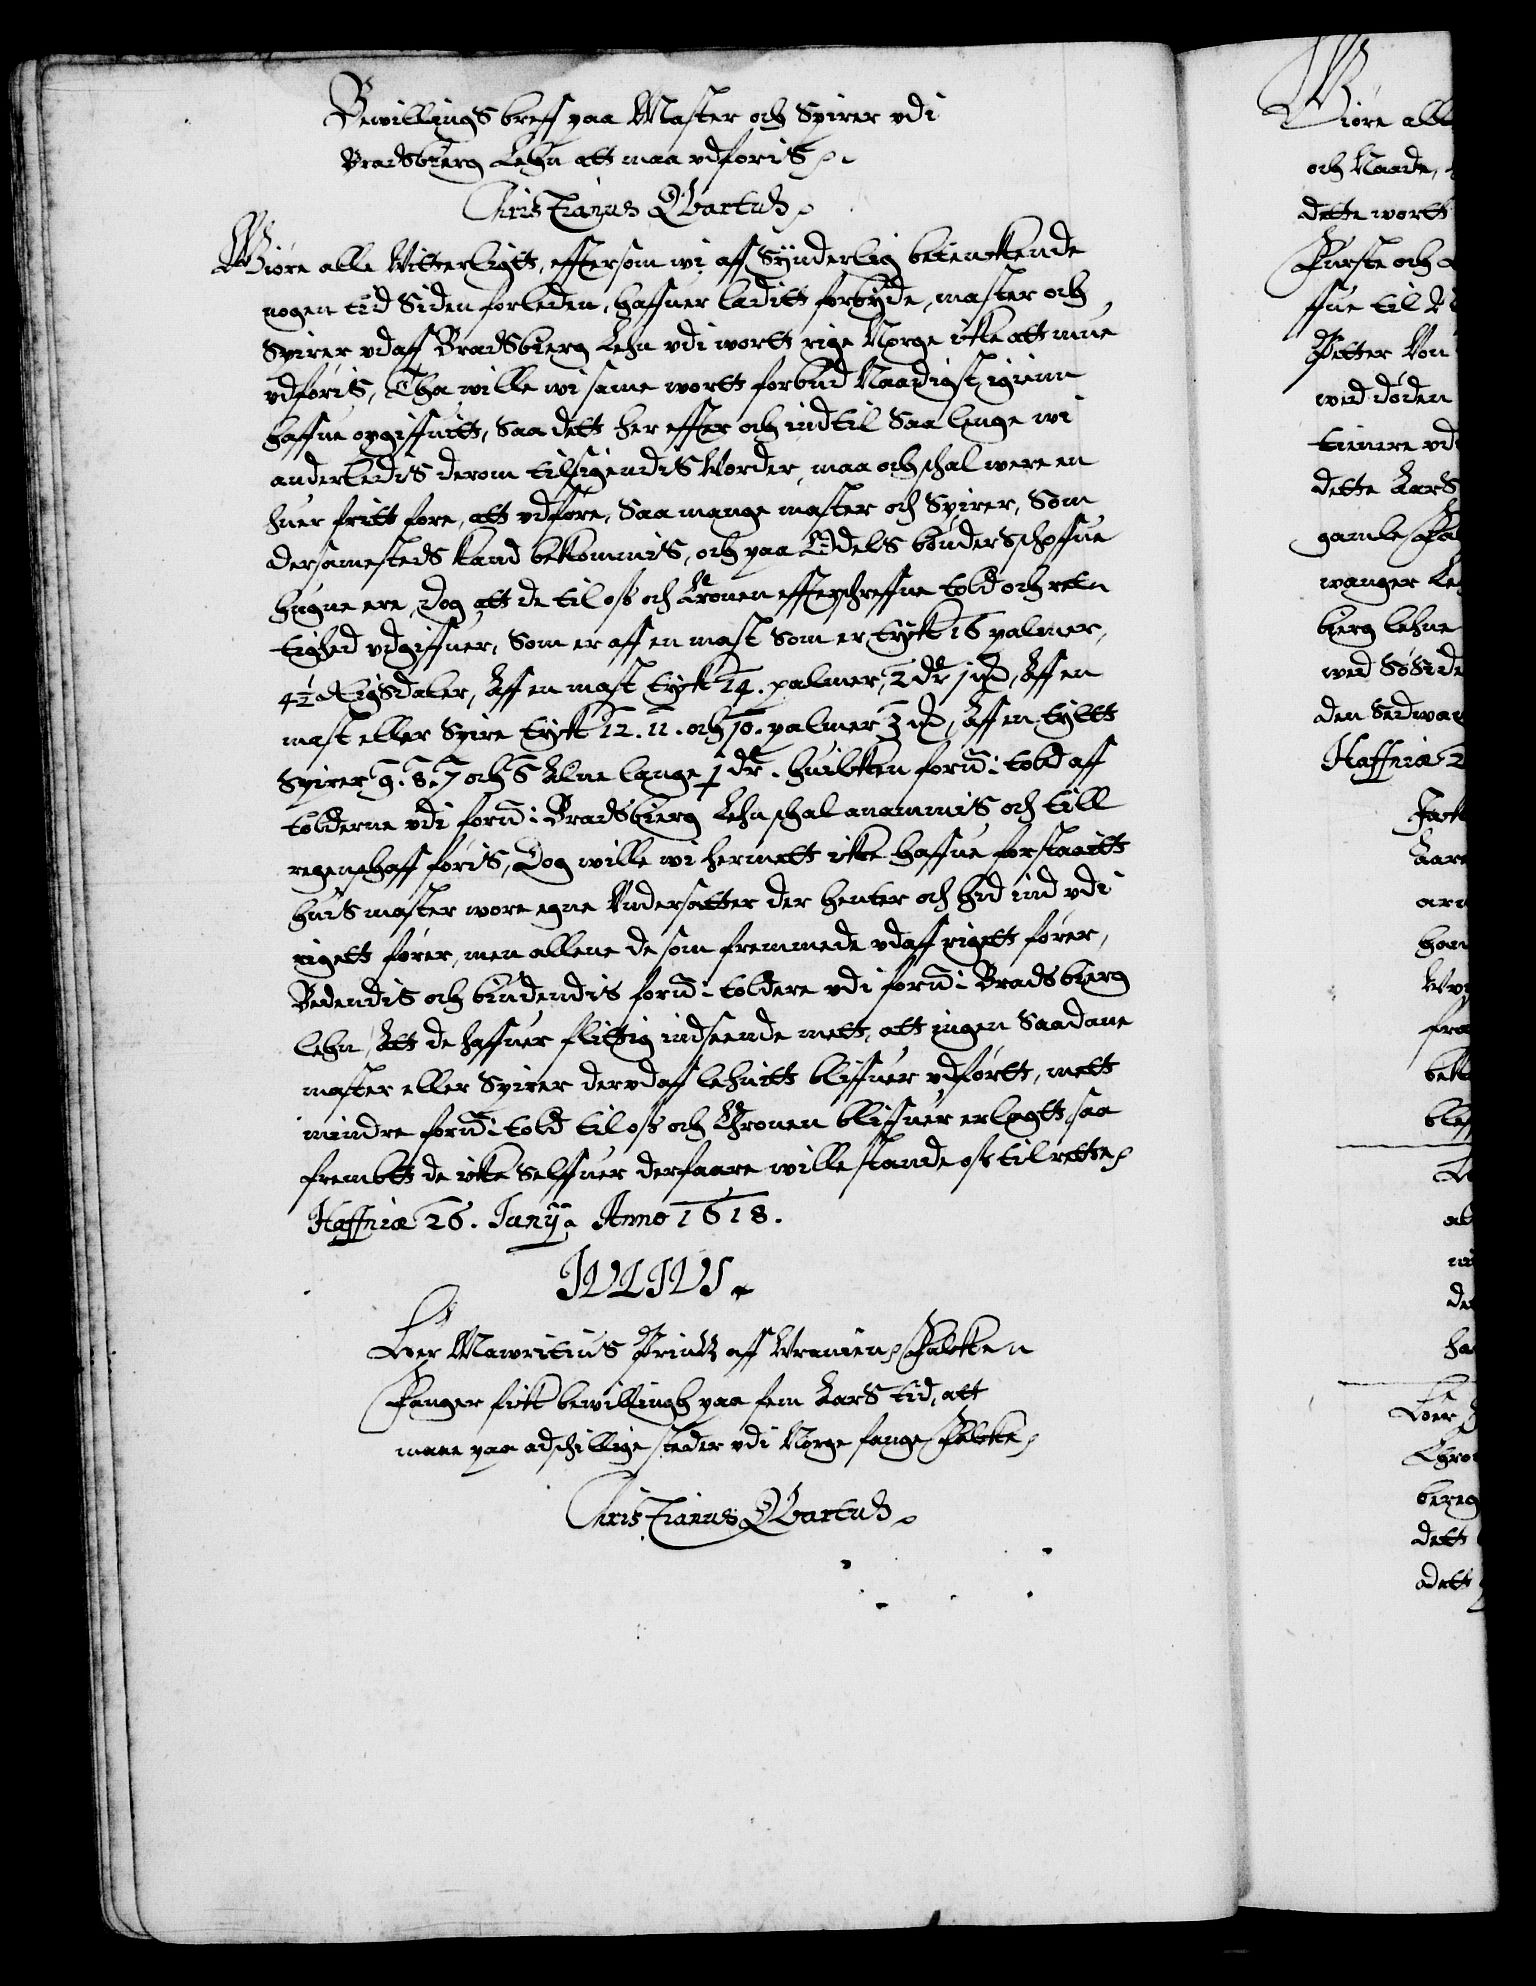 Bewillings breff paa Master och Spirer vdi
Bradsbierg Lehn att maa vdføris
Christianus Qvartus
Giøre alle Witterligtt, efftersom wi aff Synderlig betenckende
nogen tid Siden forleden, haffuer laditt forbyde, master och
Spirer vdaff Bradsbierg Lehn vdi wortt rige Norge icke att mue
vdføris, Tha wille wi same wortt forbud Naadigst igienn
haffue opgiffuitt, Saa dett her effter och indtil Saa lenge wi
anderledis derom tilsigendis Worder, maa och schal were en
huer fritt fore, att vdføre, Saa mange master och Spirer, Som
dersamesteds kand bekommis, och paa Odels bønder Schoffue
hugne ere, Dog att de til oss och Cronen effterschreffne told och rettighed
vdgiffuer, Som er aff en mast Som er tyck 16 palmer,
4½ Rigsdaler, Aff en mast tyck 14. palmer, 2 dr 1 mk, Aff en
mast eller Spire tyck 12. 11. och 10. palmer 3 mk, Aff en tyltt
Spirer 9. 8. 7 och 6 Alne lange 1 dr. huilcken forne told aff
tolderne vdi forne Bradsbierg Lehn schal anammis och till
regenschaff føris, Dog wille wi hermett icke haffue forstaaitt
huis master wore egne Vndersatter der henter och hid ind vdi
rigett fører, men allene de som fremmede vdaff rigett fører,
Bedendis och biudendis forne toldere vdi forne Bradsbierg
lehn, Att de haffuer flittig indseende mett, att ingen Saadane
master eller Spirer dervdaff lehnitt bliffuer vdførtt, mett
mindre forne told til oss och Chronen bliffuer erlagtt, saa
frembtt de icke Selffuer derfaare wille stande oss til rette
Haffniæ 26. Junij Anno 1618.
JVLIVS
Her Mawritius Printz aff Vranien Falcke
Fanger fick bewillingh paa fem Aars tid, att
maae paa adschillige steder vdi Norge fange Falcke
Christianus Qvartus
Giøre alle
och Naade,
dette wortt
Første och
ffue til
Petter Von
wed døden
tienere vd
dette Aars
gamle
wanger Le
bierg lehne
wed
den Sedwa
Haffniæ 2